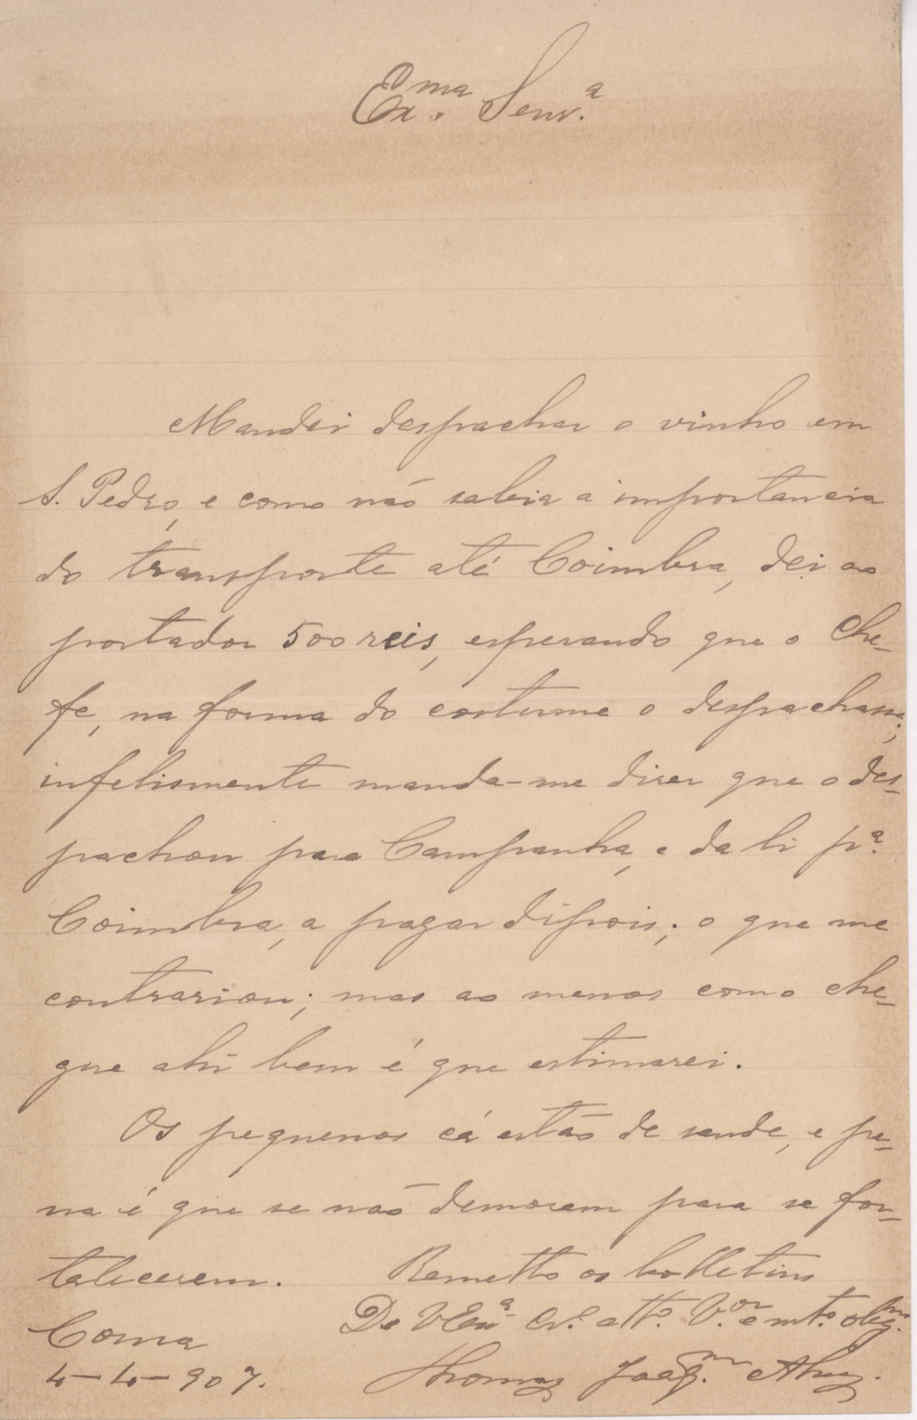 Ex.ma Senr.a
Mandei despachar o vinho em
S. Pedro, e como não sabia a importancia
do transporte até Coimbra, dei ao
portador 500 reis, esperando que o che-
fe, na forma do costume o despachasse;
infelismente manda-me diser que o des-
pachou para Campanha, e da li p.a
Coimbra, a pagar dipois; o que me
contrariou; mas ao menos como che-
gue ahi bem é que estimarei.
Os pequenos cá estão de saude, e pe-
na é que se não demorem para se for-
talecerem. Remetto os bolletins
De V Ex.a Cr.o att.o V.or e mt.o obg.mo
Coma
4-4-907. Thomaz Joaq.m